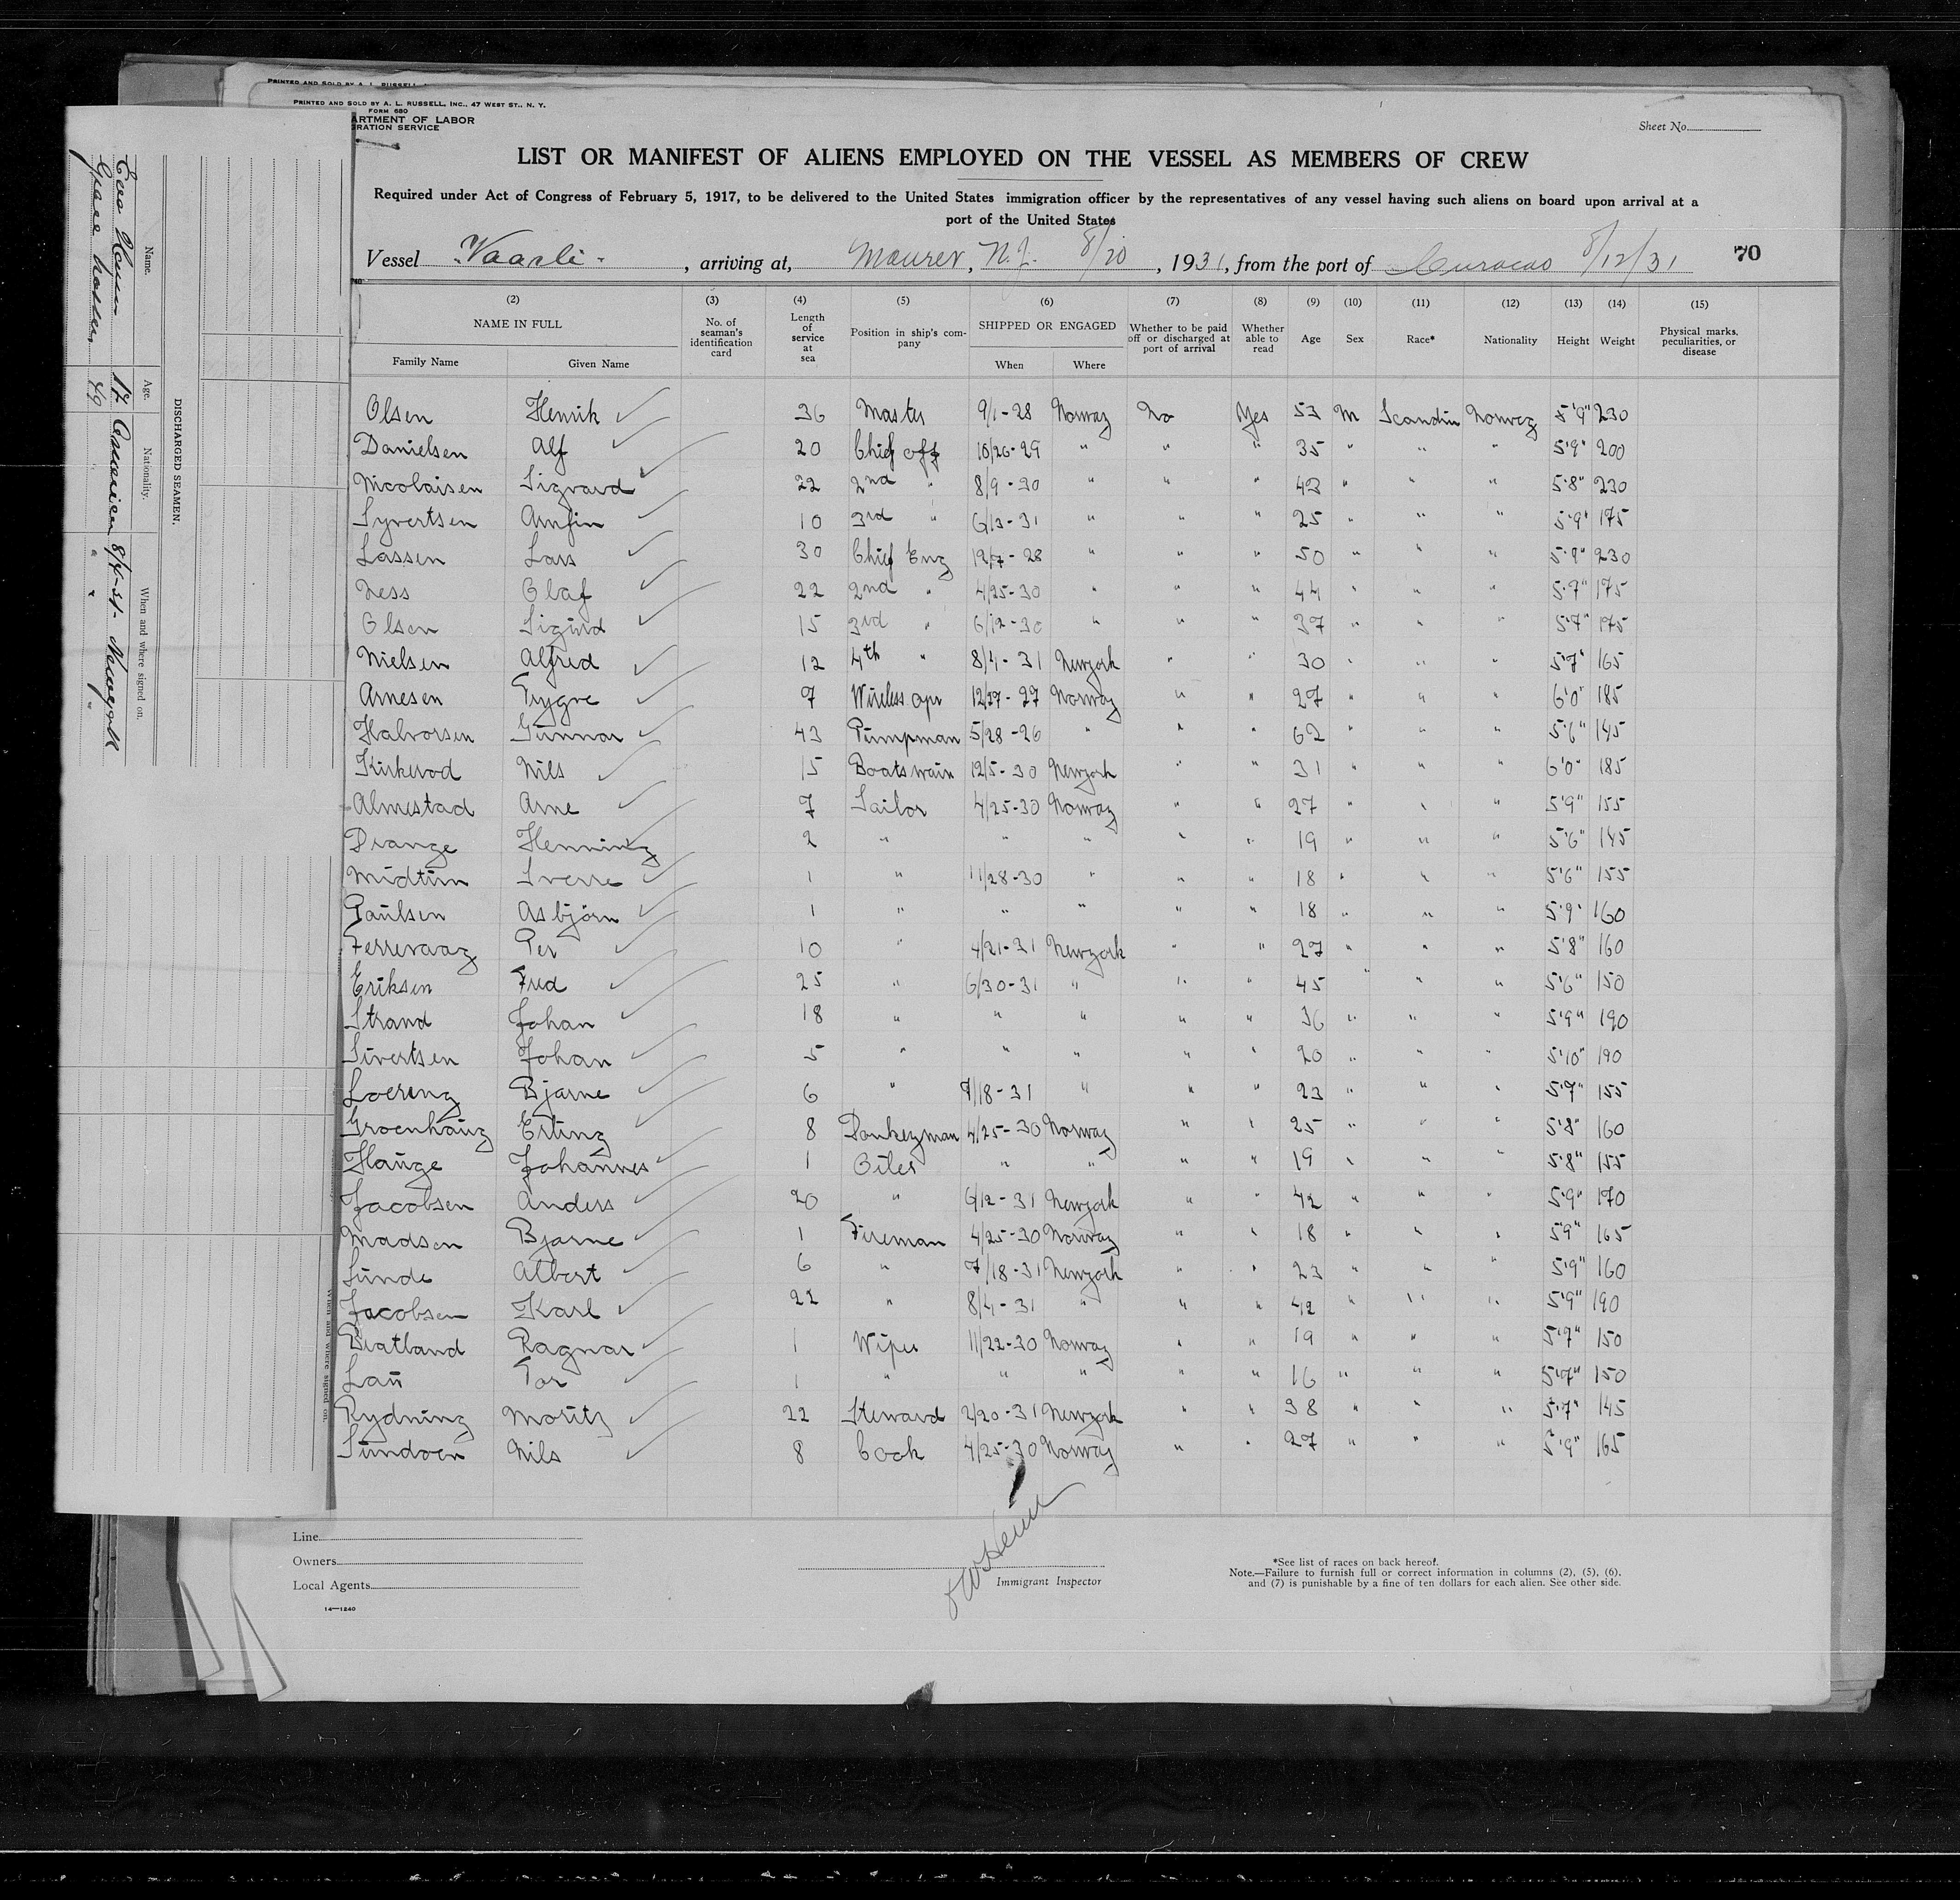 PRINTED AND SOLD BY A. L. RUSSELL
PRINTED AND SOLD BY A. L. RUSSELL, INC., 47 WEST ST., N. Y.
FORM 680
ARTMENT OF LABOR
GRATION SERVICE
Sheet No.
LIST OR MANIFEST OF ALIENS EMPLOYED ON THE VESSEL AS MEMBERS OF CREW
Required under Act of Congress of February 5, 1917, to be delivered to the United States immigration officer by the representatives of any vessel having such aliens on board upon arrival at a
port of the United States
Vessel Vaarli, arriving at, Maurer, N.J. 8/20, 1931, from the port of Curacao 8/12/31 70
(2) (3) (4) (5) (6) (7) (8) (9) (10) (11) (12) (13) (14) (15)
NAME IN FULL No. of seaman's identification card Length of service at sea Position in ship's company SHIPPED OR ENGAGED Whether to be paid off or discharged at port of arrival Whether able to read Age Sex Race* Nationality Height Weight Physical marks, peculiarities, or disease
Family Name Given Name When Where
Olsen Henrik 36 Master 9/1-28 Norway No Yes 53 M Scandin Norweg 5'9" 230
Danielsen Alf 20 Chief off 10/26-29 " " " 35 " " " 5'9" 200
Nicolaisen Sigvard 22 2nd " 8/9-30 " " " 43 " " " 5'8" 230
Syvertsen Arnfin 10 3rd " 6/13-31 " " " 25 " " " 5'9" 175
Lassen Lars 30 Chief Eng 12/7-28 " " " 50 " " " 5'9" 230
Ness Olaf 22 2nd " 4/25-30 " " " 44 " " " 5'7" 175
Olsen Sigurd 15 3rd " 6/12-30 " " " 37 " " " 5'7" 175
Nielsen Alfred 12 4th " 8/4-31 Newyork " " 30 " " " 5'7" 165
Arnesen Trygve 9 Wireless opr 12/27-27 Norway " " 27 " " " 6'0" 185
Halvorsen Gunnar 43 Pumpman 5/28-26 " " " 62 " " " 5'6" 145
Kirkerod Nils 15 Boatswain 12/5-30 Newyork " " 31 " " " 6'0" 185
Almestad Arne 7 Sailor 4/25-30 Norway " " 27 " " " 5'9" 155
Drange Henning 2 " " " " " 19 " " " 5'6" 145
Midtun Sverre 1 " 11/28-30 " " " 18 " " " 5'6" 155
Paulsen Asbjörn 1 " " " " " 18 " " " 5'9" 160
Ferrevaag Per 10 " 4/21-31 Newyork " " 27 " " " 5'8" 160
Eriksen Fred 25 " 6/30-31 " " " 45 " " " 5'6" 150
Strand Johan 18 " " " " " 36 " " " 5'9" 190
Sivertsen Johan 5 " " " " " 20 " " " 5'10" 190
Loereng Bjarne 6 " 7/18-31 " " " 23 " " " 5'7" 155
Groenhaug Erling 8 Donkeyman 4/25-30 Norway " " 25 " " " 5'8" 160
Hauge Johannes 1 Oiler " " " " 19 " " " 5'8" 155
Jacobsen Anders 20 " 6/12-31 Newyork " " 42 " " " 5'9" 170
Madsen Bjarne 1 Fireman 4/25-30 Norway " " 18 " " " 5'9" 165
Sunde Albert 6 " 7/18-31 Newyork " " 23 " " " 5'9" 160
Jacobsen Karl 22 " 8/4-31 " " " 42 " " " 5'9" 190
Bratland Ragnar 1 Wiper 11/22-30 Norway " " 19 " " " 5'7" 150
Lau Tor 1 " " " " " 16 " " " 5'7" 150
Rydning Moritz 22 Steward 2/20-31 Newyork " " 38 " " " 5'7" 145
Sundoen Nils 8 Cook 4/25-30 Norway " " 27 " " " 5'9" 165
Line
Owners
Local Agents
14—1240
Immigrant Inspector
*See list of races on back hereof.
Note.—Failure to furnish full or correct information in columns (2), (5), (6),
and (7) is punishable by a fine of ten dollars for each alien. See other side.
DISCHARGED SEAMEN.
Name. Age. Nationality. When and where signed on.
17 8/4-31. Newyork
49 " " "
When and where signed on.